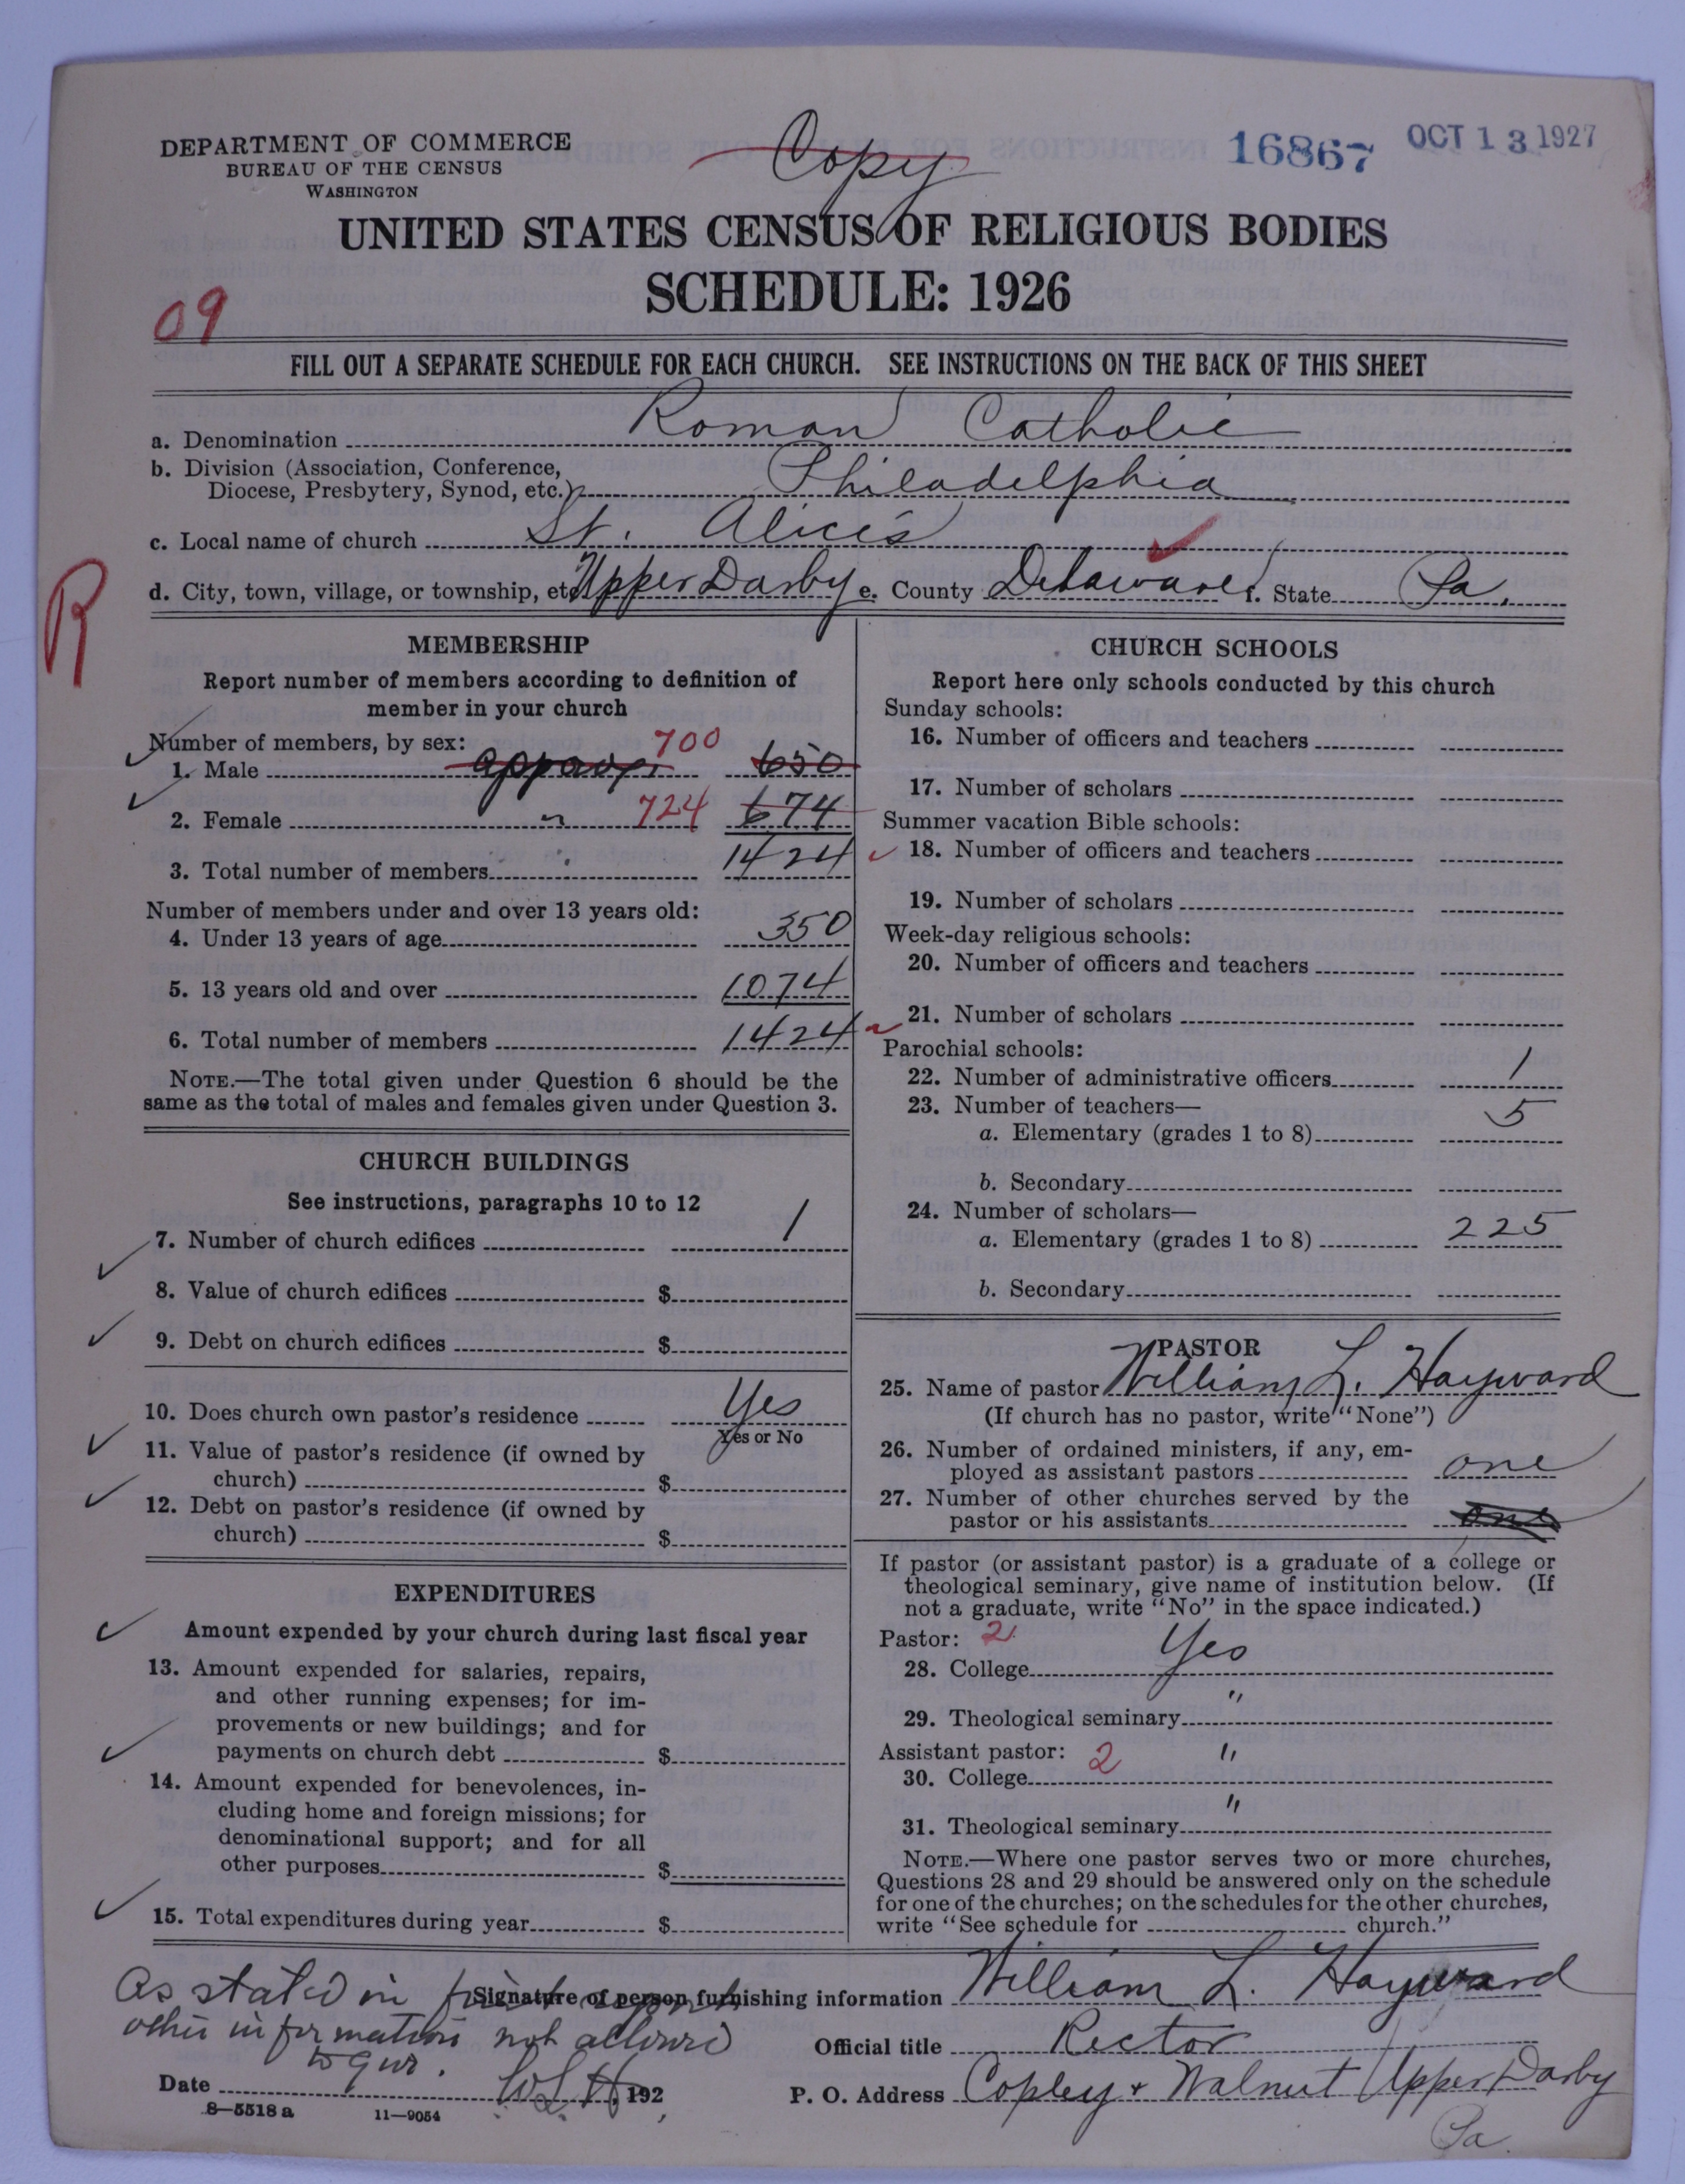 DEPARTMENT OF COMMERCE
BUREAU OF THE CENSUS
WASHINGTON
Copy
16867 OCT 13 1927
UNITED STATES CENSUS OF RELIGIOUS BODIES
SCHEDULE: 1926
09
FILL OUT A SEPARATE SCHEDULE FOR EACH CHURCH. SEE INSTRUCTIONS ON THE BACK OF THIS SHEET
a. Denomination Roman Catholic
b. Division (Association, Conference,
Diocese, Presbytery, Synod, etc.) Philadelphia
c. Local name of church St. Alice's
d. City, town, village, or township, etc. Upper Darby e. County Delaware f. State Pa.
R
MEMBERSHIP
Report number of members according to definition of
member in your church
Number of members, by sex:
1. Male approx. 700 650
2. Female " 724 674
3. Total number of members 1424
Number of members under and over 13 years old:
4. Under 13 years of age 350
5. 13 years old and over 1074
6. Total number of members 1424
NOTE.—The total given under Question 6 should be the
same as the total of males and females given under Question 3.
CHURCH BUILDINGS
See instructions, paragraphs 10 to 12
7. Number of church edifices 1
8. Value of church edifices $
9. Debt on church edifices $
10. Does church own pastor's residence Yes
Yes or No
11. Value of pastor's residence (if owned by
church) $
12. Debt on pastor's residence (if owned by
church) $
EXPENDITURES
Amount expended by your church during last fiscal year
13. Amount expended for salaries, repairs,
and other running expenses; for im-
provements or new buildings; and for
payments on church debt $
14. Amount expended for benevolences, in-
cluding home and foreign missions; for
denominational support; and for all
other purposes $
15. Total expenditures during year $
CHURCH SCHOOLS
Report here only schools conducted by this church
Sunday schools:
16. Number of officers and teachers
17. Number of scholars
Summer vacation Bible schools:
18. Number of officers and teachers
19. Number of scholars
Week-day religious schools:
20. Number of officers and teachers
21. Number of scholars
Parochial schools:
22. Number of administrative officers 1
23. Number of teachers—
a. Elementary (grades 1 to 8) 5
b. Secondary
24. Number of scholars—
a. Elementary (grades 1 to 8) 225
b. Secondary
PASTOR
25. Name of pastor William L. Hayward
(If church has no pastor, write "None")
26. Number of ordained ministers, if any, em-
ployed as assistant pastors one
27. Number of other churches served by the
pastor or his assistants one
If pastor (or assistant pastor) is a graduate of a college or
theological seminary, give name of institution below. (If
not a graduate, write "No" in the space indicated.)
Pastor: 2
28. College Yes
29. Theological seminary "
Assistant pastor: 2
30. College "
31. Theological seminary "
NOTE.—Where one pastor serves two or more churches,
Questions 28 and 29 should be answered only on the schedule
for one of the churches; on the schedules for the other churches,
write "See schedule for church."
As stated in first report
other information not allowed
to give.
W L H
Signature of person furnishing information William L. Hayward
Official title Rector
Date 192
P. O. Address Copley + Walnut Upper Darby
Pa.
8—5518 a 11—9054